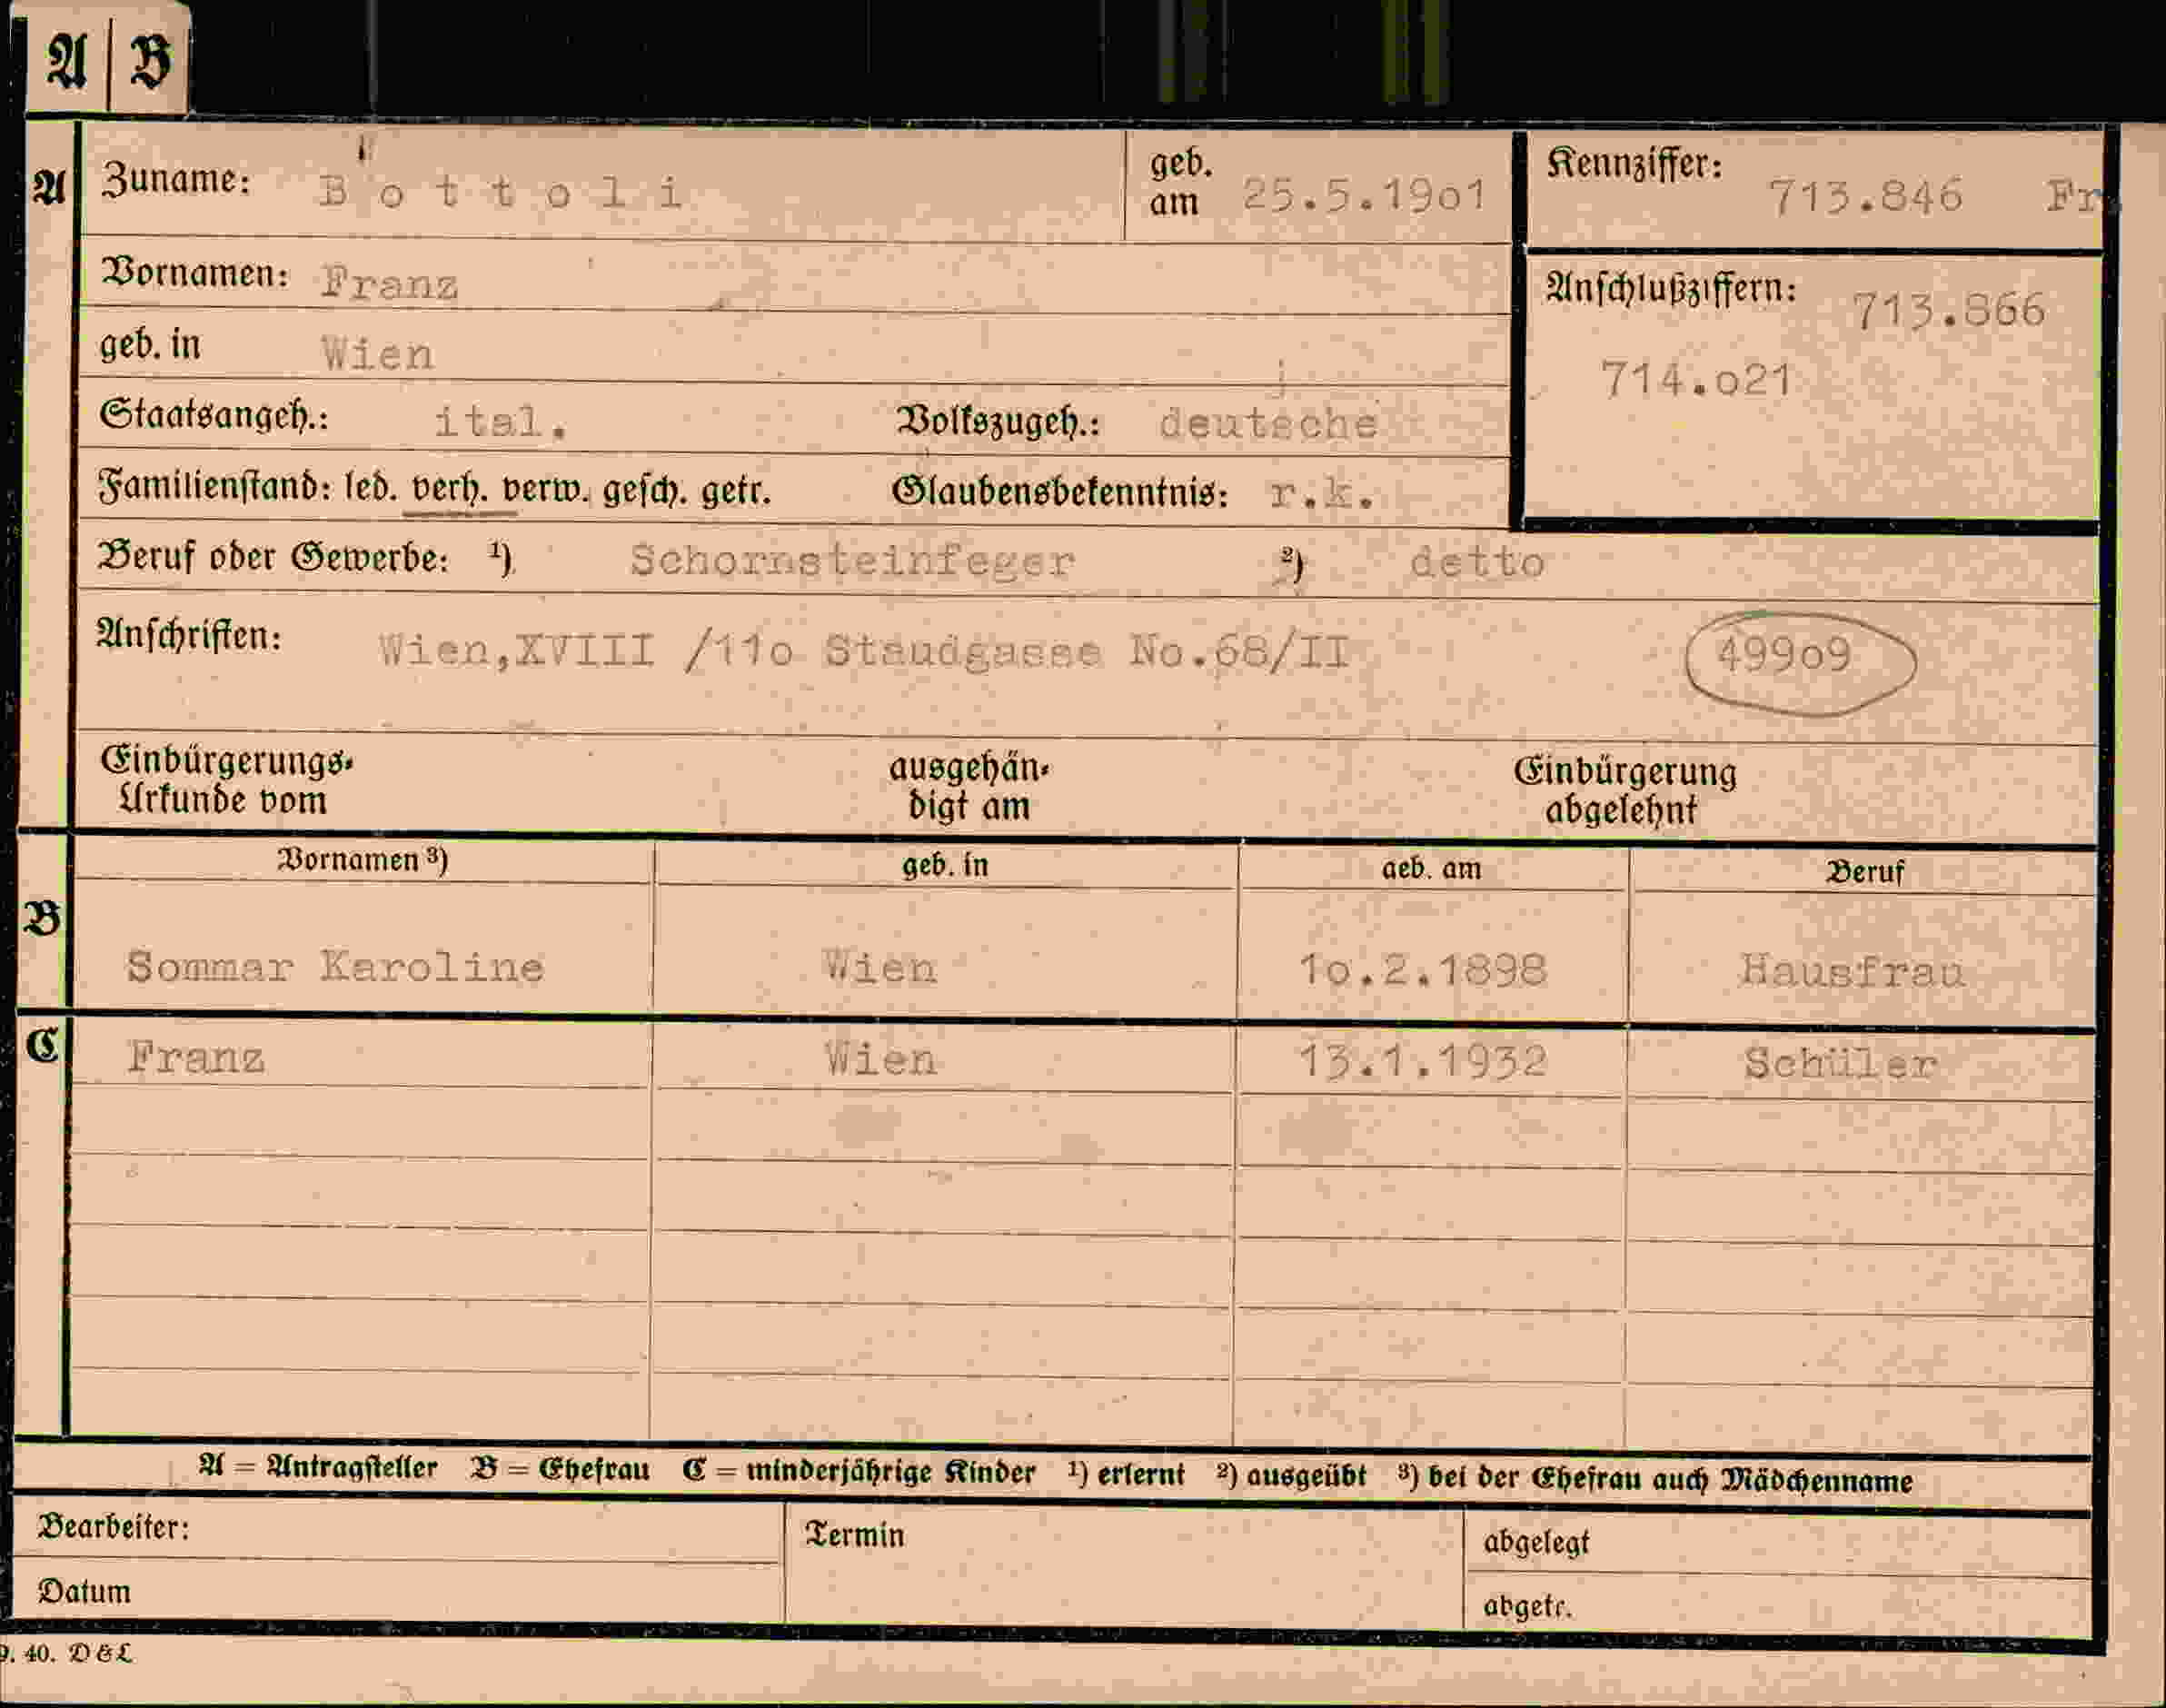 A | B
A Zuname: B o t t o l i geb. am 25.5.19o1 Kennziffer: 713.846 Fr
Vornamen: Franz Anschlußziffern: 713.866
geb. in Wien 714.o21
Staatsangeh.: ital. Volkszugeh.: deutsche
Familienstand: led. verh. verw. gesch. getr. Glaubensbekenntnis: r.k.
Beruf oder Gewerbe: ¹) Schornsteinfeger ²) detto
Anschriften: Wien,XVIII /11o Staudgasse No.68/II 499o9
Einbürgerungs- ausgehän- Einbürgerung
Urkunde vom digt am abgelehnt
Vornamen ³) geb. in geb. am Beruf
B
Sommar Karoline Wien 1o.2.1898 Hausfrau
C Franz Wien 13.1.1932 Schüler
A = Antragsteller B = Ehefrau C = minderjährige Kinder ¹) erlernt ²) ausgeübt ³) bei der Ehefrau auch Mädchenname
Bearbeiter: Termin abgelegt
Datum abgetr.
9. 40. D & L